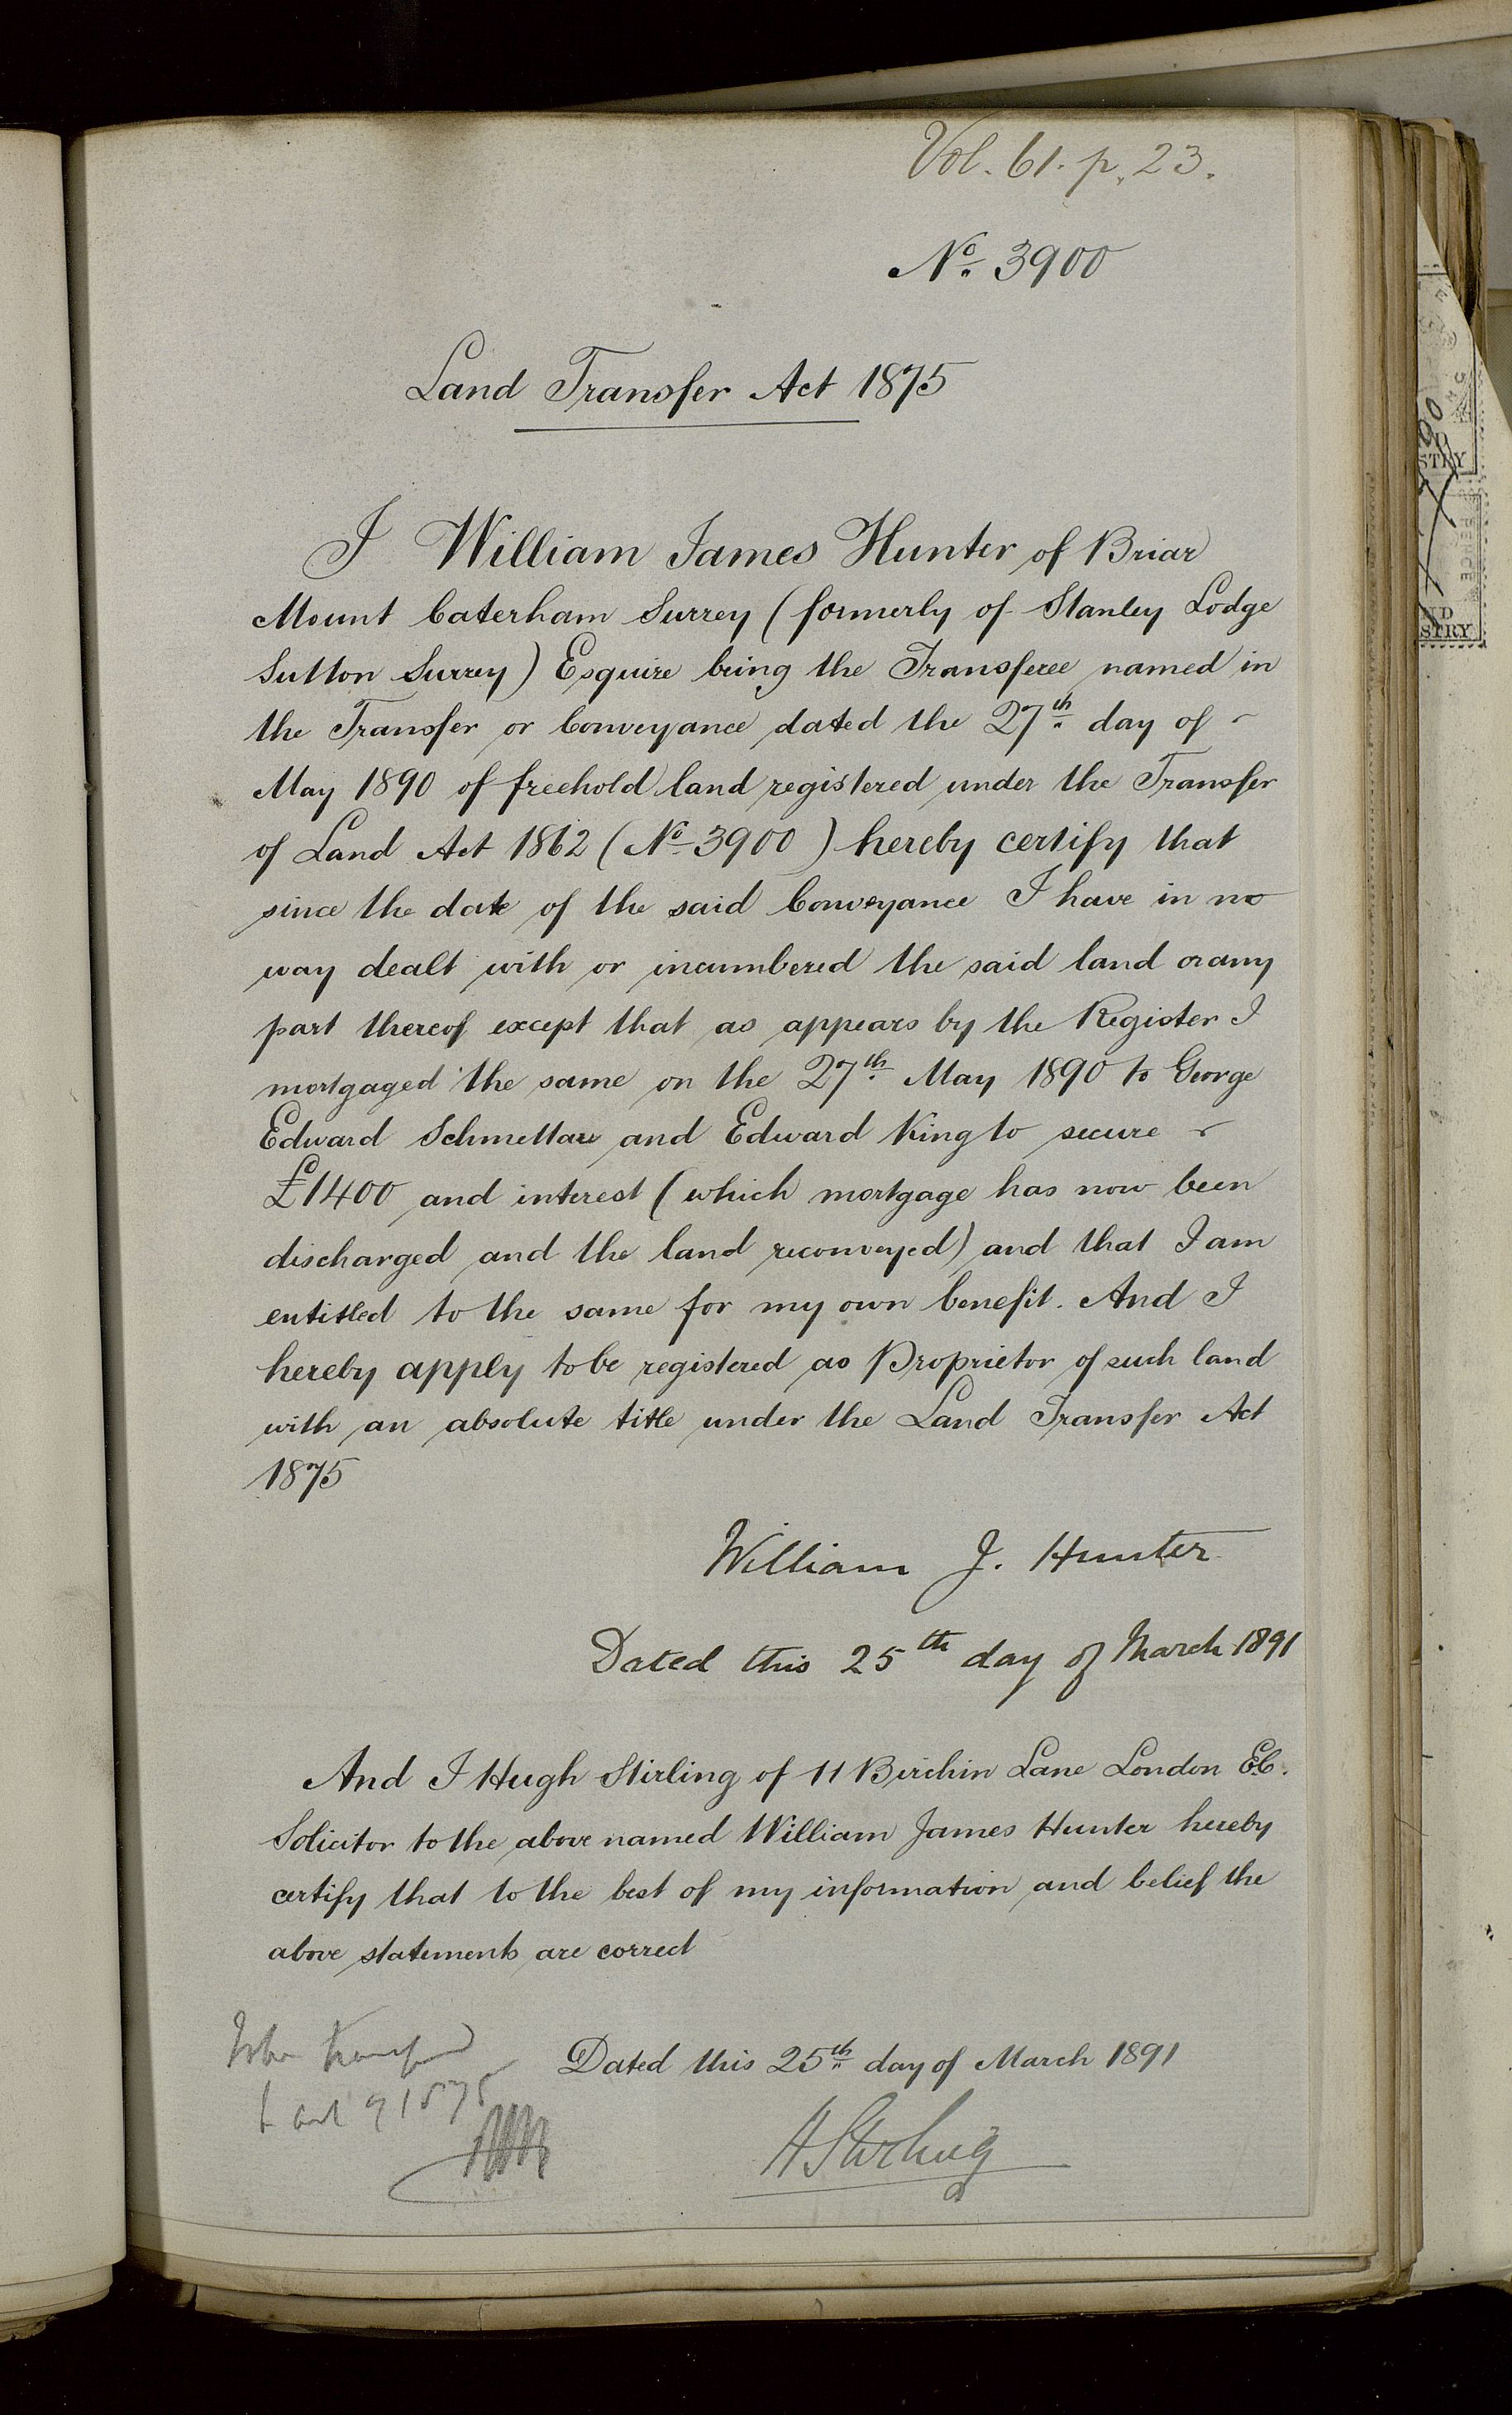 Vol. 61. p. 23.
No. 3900
Land Transfer Act 1875
I William James Hunter of Briar
Mount Caterham Surrey (formerly of Stanley Lodge
Sutton Surrey) Esquire being the Transferee named in
the Transfer or Conveyance dated the 27th day of
May 1890 of freehold land registered under the Transfer
of Land Act 1862 (No 3900) hereby certify that
since the date of the said Conveyance I have in no
way dealt with or incumbered the said land or any
part thereof except that as appears by the Register I
mortgaged the same on the 27th May 1890 to George
Edward Schmettau and Edward King to secure
£1400 and interest (which mortgage has now been
discharged and the land reconveyed) and that I am
entitled to the same for my own benefit. And I
hereby apply to be registered as Proprietor of such land
with an absolute title under the Land Transfer Act
1875
William J. Hunter
Dated this 25th day of March 1891
And I Hugh Stirling of 11 Birchin Lane London E.C.
Solicitor to the above named William James Hunter hereby
certify that to the best of my information and belief the
above statements are correct
Dated this 25th day of March 1891
H Stirling
to be transferred
to Act of 1875
ND
STRY